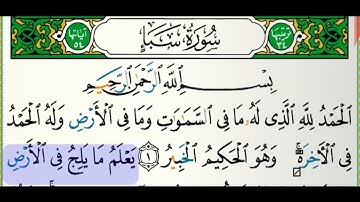 ترتيبها ٣٤ سُورَةُ سَبَإٍ آياتها ٥٤
بِسْمِ ٱللَّهِ ٱلرَّحْمَٰنِ ٱلرَّحِيمِ
ٱلْحَمْدُ لِلَّهِ ٱلَّذِى لَهُۥ مَا فِى ٱلسَّمَٰوَٰتِ وَمَا فِى ٱلْأَرْضِ وَلَهُ ٱلْحَمْدُ
فِى ٱلْءَاخِرَةِ ۚ وَهُوَ ٱلْحَكِيمُ ٱلْخَبِيرُ ١ يَعْلَمُ مَا يَلِجُ فِى ٱلْأَرْضِ